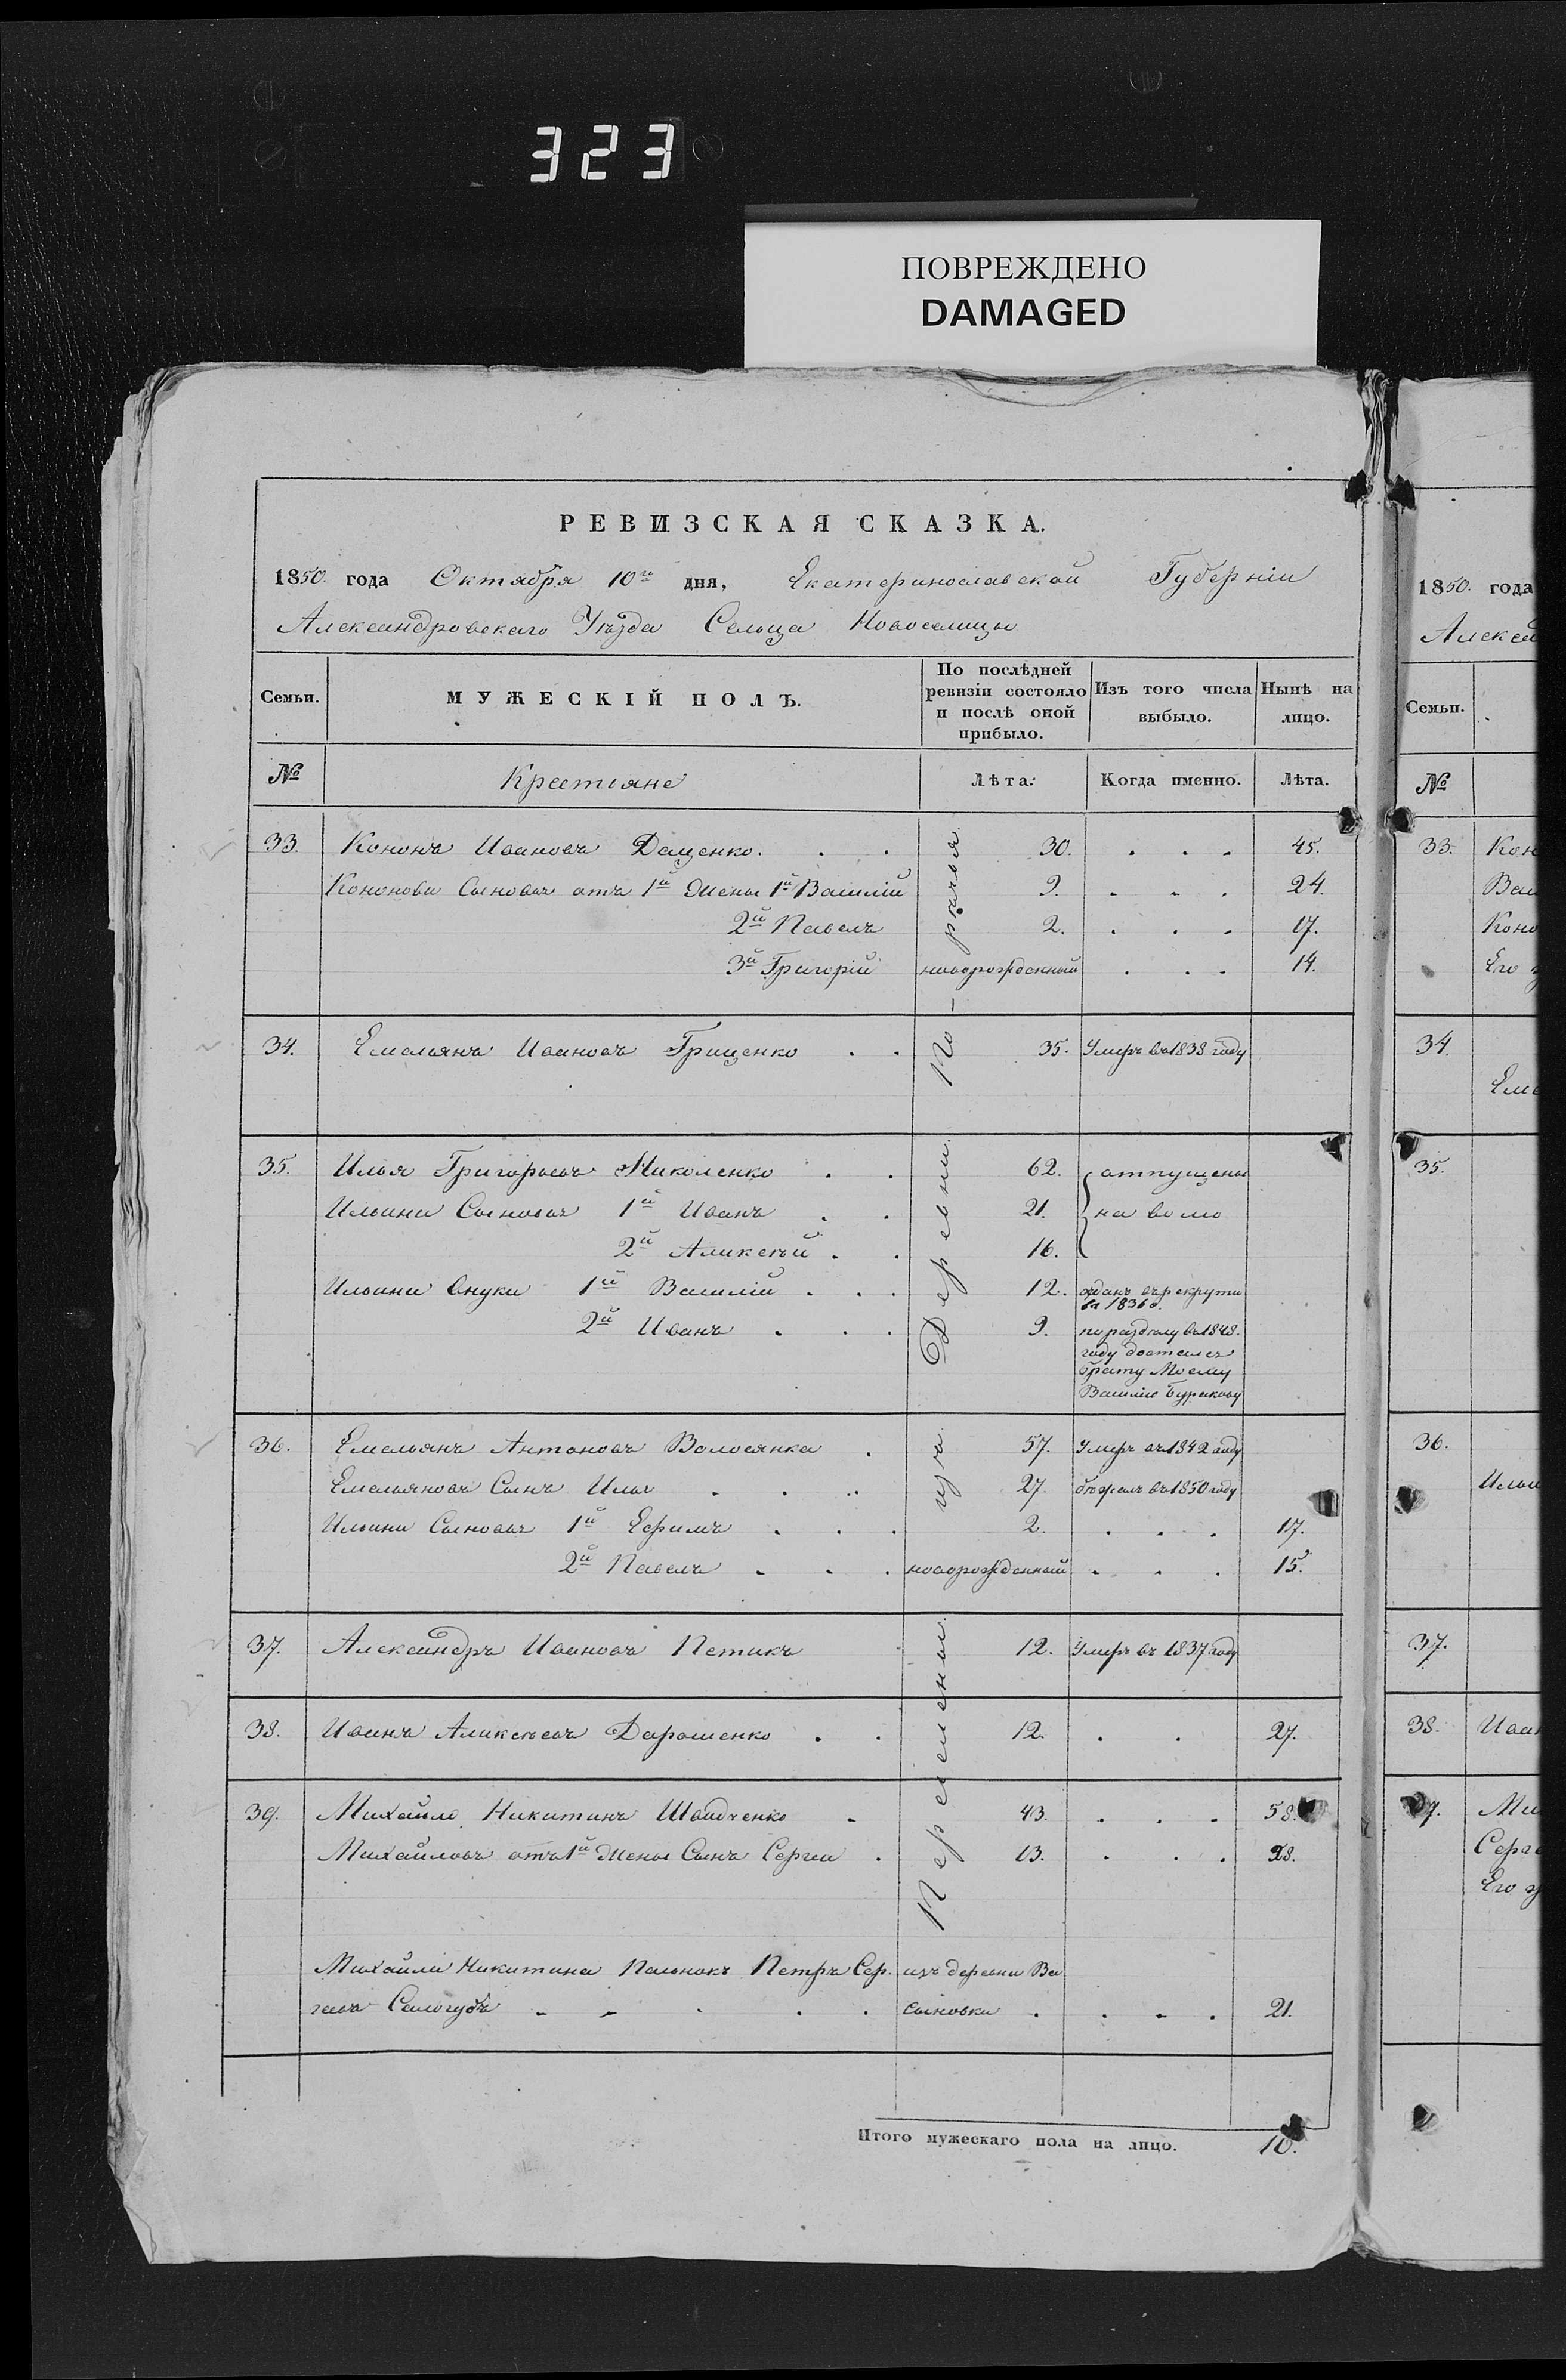 323
ПОВРЕЖДЕНО
DAMAGED
РЕВИЗСКАЯ СКАЗКА.
1850. года Октября 10го дня, Екатеринославской Губерніи
Александровскаго Уѣзда Сельца Новоселицы
Семьи. МУЖЕСКІЙ ПОЛЪ. По послѣдней ревизіи состояло и послѣ оной прибыло. Изъ того числа выбыло. Нынѣ на лицо.
№ Крестьяне Лѣта. Когда именно. Лѣта.
33. Кононъ Ивановъ Даценко. 30. 45.
Кононовы Сыновья отъ 1й Жены 1й Василій 9. 24.
2й Павелъ 2. 17.
3й Григорій новорожденный 14.
34. Емельянъ Ивановъ Гриценко 35. Умеръ въ 1838 году
35. Илья Григорьевъ Миколенко 62. отпущены
Ильины Сыновья 1й Иванъ 21. на волю
2й Алексѣй 16.
Ильины Внуки 1й Василій 12. отданъ въ рекруты
въ 1836 г.
2й Иванъ 9. по раздѣлу въ 1848.
году достался
брату Моему
Василію Буракову
36. Емельянъ Антоновъ Волосянка 57. Умеръ въ 1842 году
Емельяновъ Сынъ Илья 27. бѣжалъ въ 1850 году
Ильины Сыновья 1й Ефимъ 2. 17.
2й Павелъ новорожденный 15.
37. Александръ Ивановъ Петикъ 12. Умеръ въ 1837 году
38. Иванъ Алексѣевъ Дарошенко 12. 27.
39. Михайло Никитинъ Швидченко 43. 58.
Михайловъ отъ 1й Жены Сынъ Сергей 13. 28.
Михайлы Никитина Пасынокъ Петръ Сер- изъ деревни Ва
геевъ Салогубъ сыновки 21.
Переселены изъ Деревни
Итого мужескаго пола на лицо. 10.
1850. года
Алексан
Семьи.
№
33. Кон
Вас
Коно
Его
34.
Еме
35.
36.
Ильи
37.
38. Иван
Ми
Серге
Его